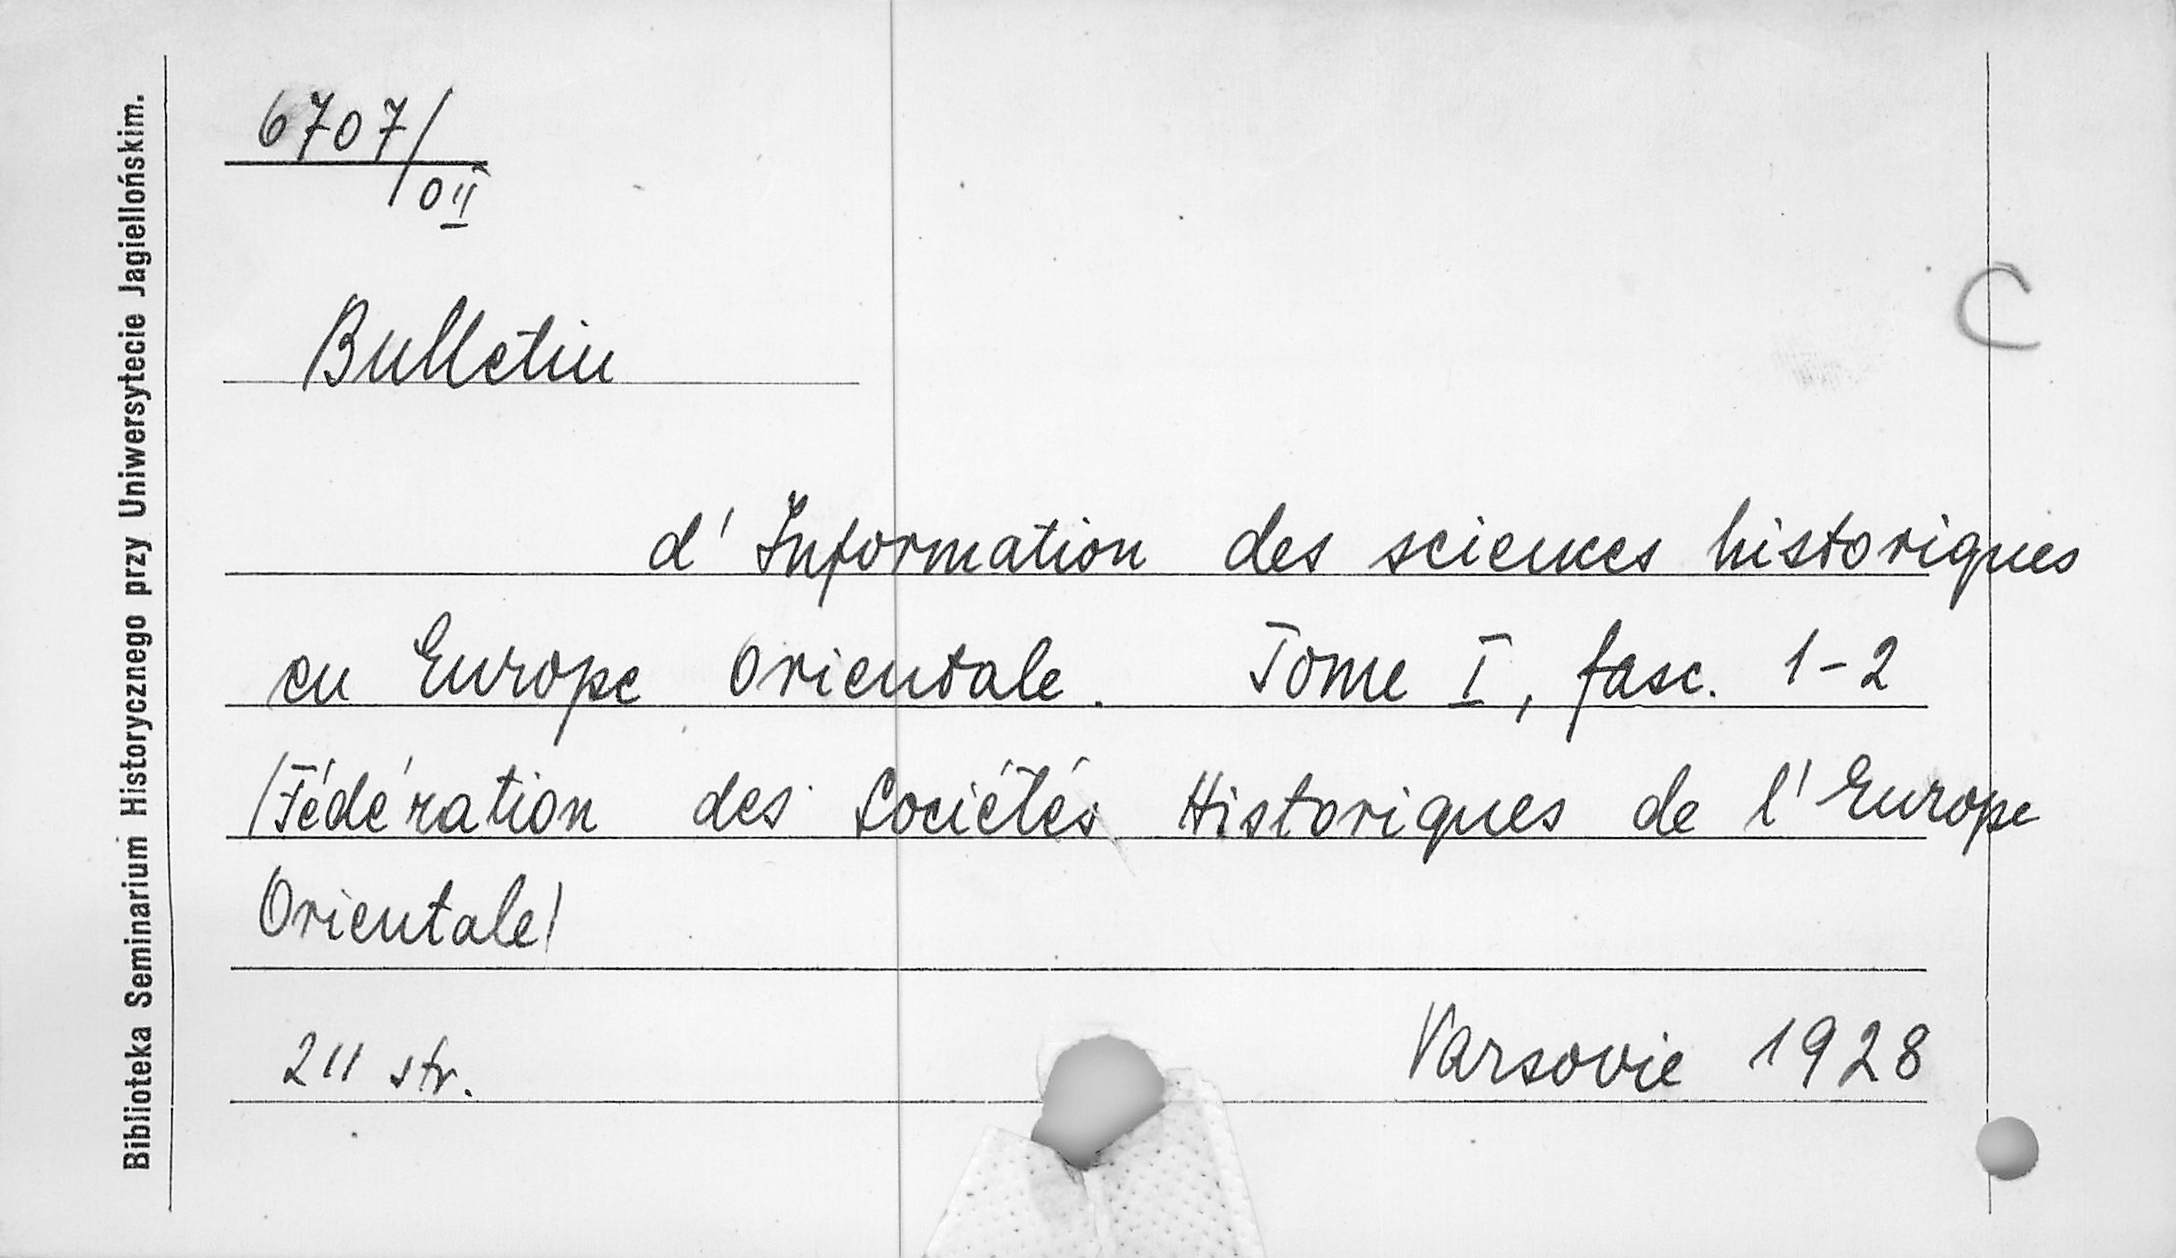 Biblioteka Seminarium Historycznego przy Uniwersytecie Jagiellońskim.
6707/
0 II
C
Bulletin
d' Information des sciences historiques
en Europe Orientale. Tome I, fasc. 1-2
/Fédération des Sociétés Historiques de l'Europe
Orientale/
211 str. Varsovie 1928